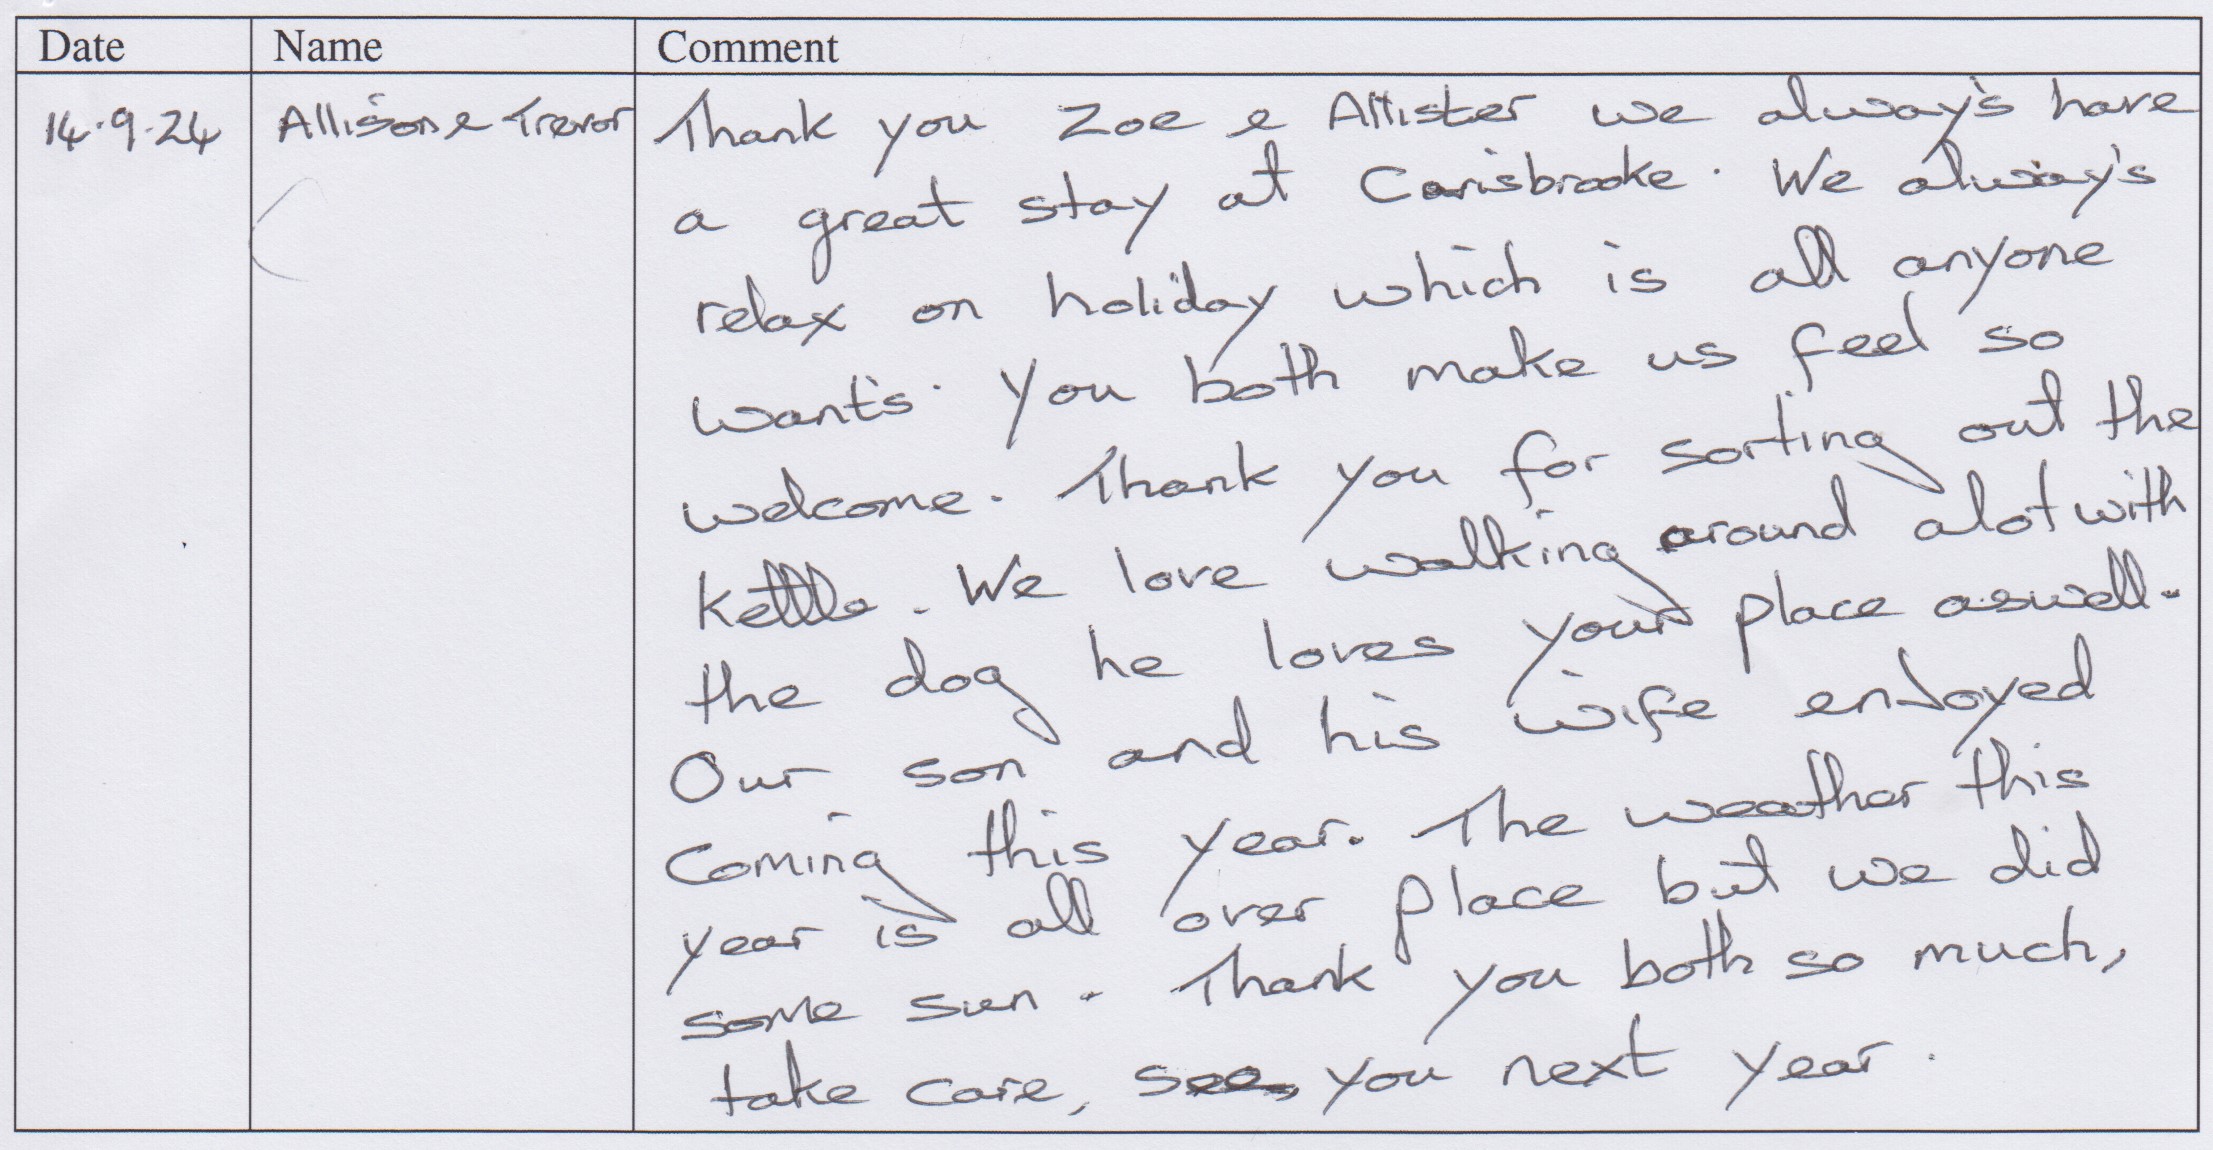 Date Name Comment
14.9.24 Allison & Trevor Thank you Zoe & Allister we always have
a great stay at Carisbrooke. We always
relax on holiday which is all anyone
wants. You both make us feel so
welcome. Thank you for sorting out the
kettle. We love walking around alot with
the dog he loves your place aswell.
Our son and his wife enjoyed
coming this year. The weather this
year is all over place but we did
some sun. Thank you both so much,
take care, see you next year.